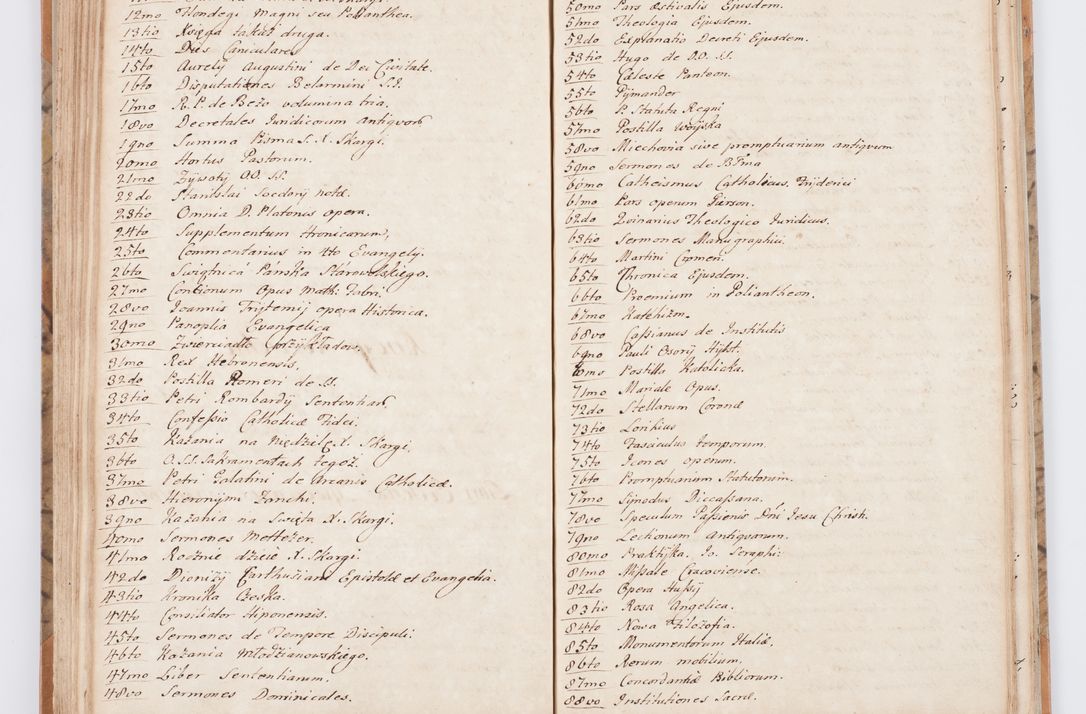 12mo Hondegi Magni seu Polianthea.
13tio Xsięga takaż druga.
14to Dies Caniculares
15to Aurely Augustini de Dei Civitate.
16to Disputationes Belarmini S.J.
17mo R. P. de Bezo volumina tria.
18vo Decretales Iuridicorum antiquor
19no Summa Pisma S. X. Skargi.
20mo Hortus Pastorum.
21mo Żywoty OO. SS.
22do Stanislai
23tio Omnia D. Platonis opera.
24to Supplementum Hronicarum,
25to Commentarius in 4to Evangely.
26to Swiątnica Pánska Stárowolskiego.
27mo Contionum Opus Math: Fabri.
28vo Ioannis Trytemij opera Historica.
29no Panoplia Evangelica
30mo Zwierciadło Przykładow.
31mo Rex Hebronensis,
32do Postilla Romeri de SS.
33tio Petri Lombardy Sententiar,
34to Confessio Catholicæ Fidei.
35to Kazania na Niędzielę X. Skargi,
36to O. SS. Sakramentach tegoż.
37mo Petri Galatini de Arcanis Catholicæ.
38vo Hieronymi Zanchi.
39no Kazania na Swięta X. Skargi.
40mo Sermones Meffreter.
41mo Rocznie dzieie X. Skargi.
42do Dionizy Carthusiani Epistolæ et Evangelia.
43tio Kronika Czeska.
44to Consiliator Hiponensis.
45to Sermones de Tempore Discipuli.
46to Kazania Młodzianowskiego.
47mo Liber Sententiarum.
48vo Sermones Dominicales.
50mo Pars Æstivalis Ejusdem.
51mo Theologia Ejusdem.
52do Explanatio Decreti Ejusdem.
53tio Hugo de D.O. SS.
54to Cæleste Panteon.
55to Pijmander
56to P. Statuta Regni
57mo Postilla Woyska
58vo Miechovia sive promptuarium antiqvum
59no Sermones de B̃Ma
60mo Catheismus Catholicus. Fryderici
61mo Pars operum Gerson.
62do Theologico Iuridicus.
63tio Sermones Manugraphii.
64to Martini Cromeri.
65to Chronica Ejusdem.
66to Proemium in Poliantheon.
67mo Katehizm.
68vo Cassianus de Institutis
69no Pauli Osorÿ Hÿst.
70mo Postilla Katolicka.
71mo Mariale Opus.
72do Stellarum Coronæ
73tio
74to Fasciculus temporum.
75to Icones operum.
76to Promptuarium Statutorum.
77mo Synodus Dieccasana.
78vo Speculum Passionis Dñi Jesu Christi.
79no Lectionum Antiquarum.
80mo Praktÿka. Io. Seraphi:
81mo Missale Cracoviense.
82do Opera Hussÿ
83tio Rosa Angelica.
84to Nowa Filozofia.
85to Monumentorum Italiæ.
86to Rerum mobilium.
87mo Concordantiæ Bibliorum.
88vo Institutiones Sacræ.